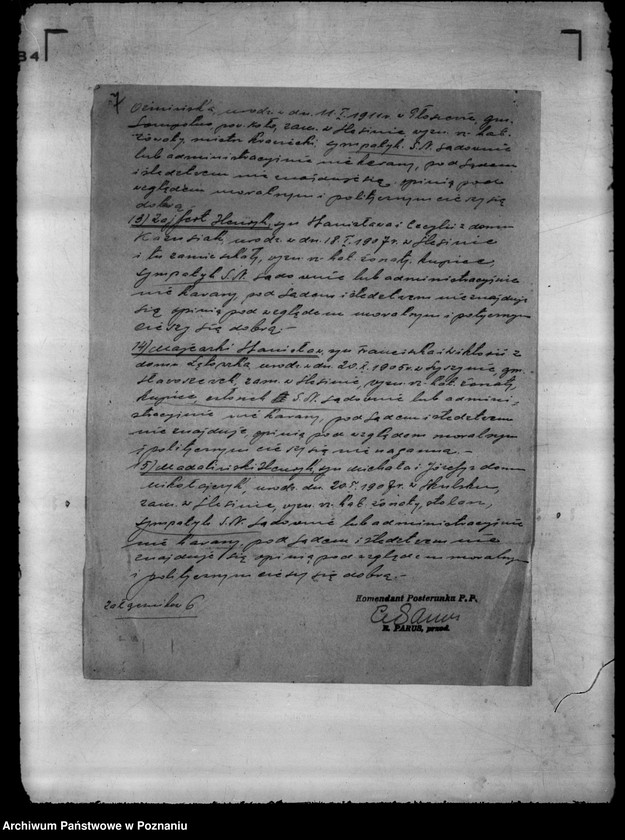 34
7
urodz. dn. 11.I.1911r. w gm.
pow. Koło, zam. w Ślesinie wyzn. rz. kat.
sympatyk S.N. sądownie
lub administracyjnie nie karany, pod sądem
i śledztwem nie znajduje się, opinią pod
względem moralnym i politycznym cieszy się
dobrą.
13) Zajfert Henryk, syn Stanisława i z domu
urodz. w dn. 18.I.1907r. w Ślesinie
i tu zamieszkały, wyzn. rz. kat. żonaty, kupiec,
sympatyk S.N. sądownie lub administracyjnie
nie karany, pod sądem i śledztwem nie znajduje
się, opinią pod względem moralnym i politycznym
cieszy się dobrą.-
14) Stanisław, syn Franciszka i Wiktorii z
domu urodz. w dn. 20. 1905r. w gm.
zam. w Ślesinie, wyzn. rz. kat. żonaty,
kupiec, członek S.N. sądownie lub admini-
stracyjnie nie karany, pod sądem i śledztwem
nie znajduje, opinią pod względem moralnym
i politycznym cieszy się naganną.-
15) Madaliński Henryk, syn Michała i Józefy z domu
Mikołajczyk, urodz. dn. 20.I.1907r. w
zam. w Ślesinie, wyzn. rz. kat. żonaty, stolarz,
sympatyk S.N. sądownie lub administracyjnie
nie karany, pod sądem i śledztwem nie
znajduje się, opinią pod względem moralnym
i politycznym cieszy się dobrą.-
załączników 6
Komendant Posterunku P. P.
PARUS, przod.
Archiwum Państwowe w Poznaniu